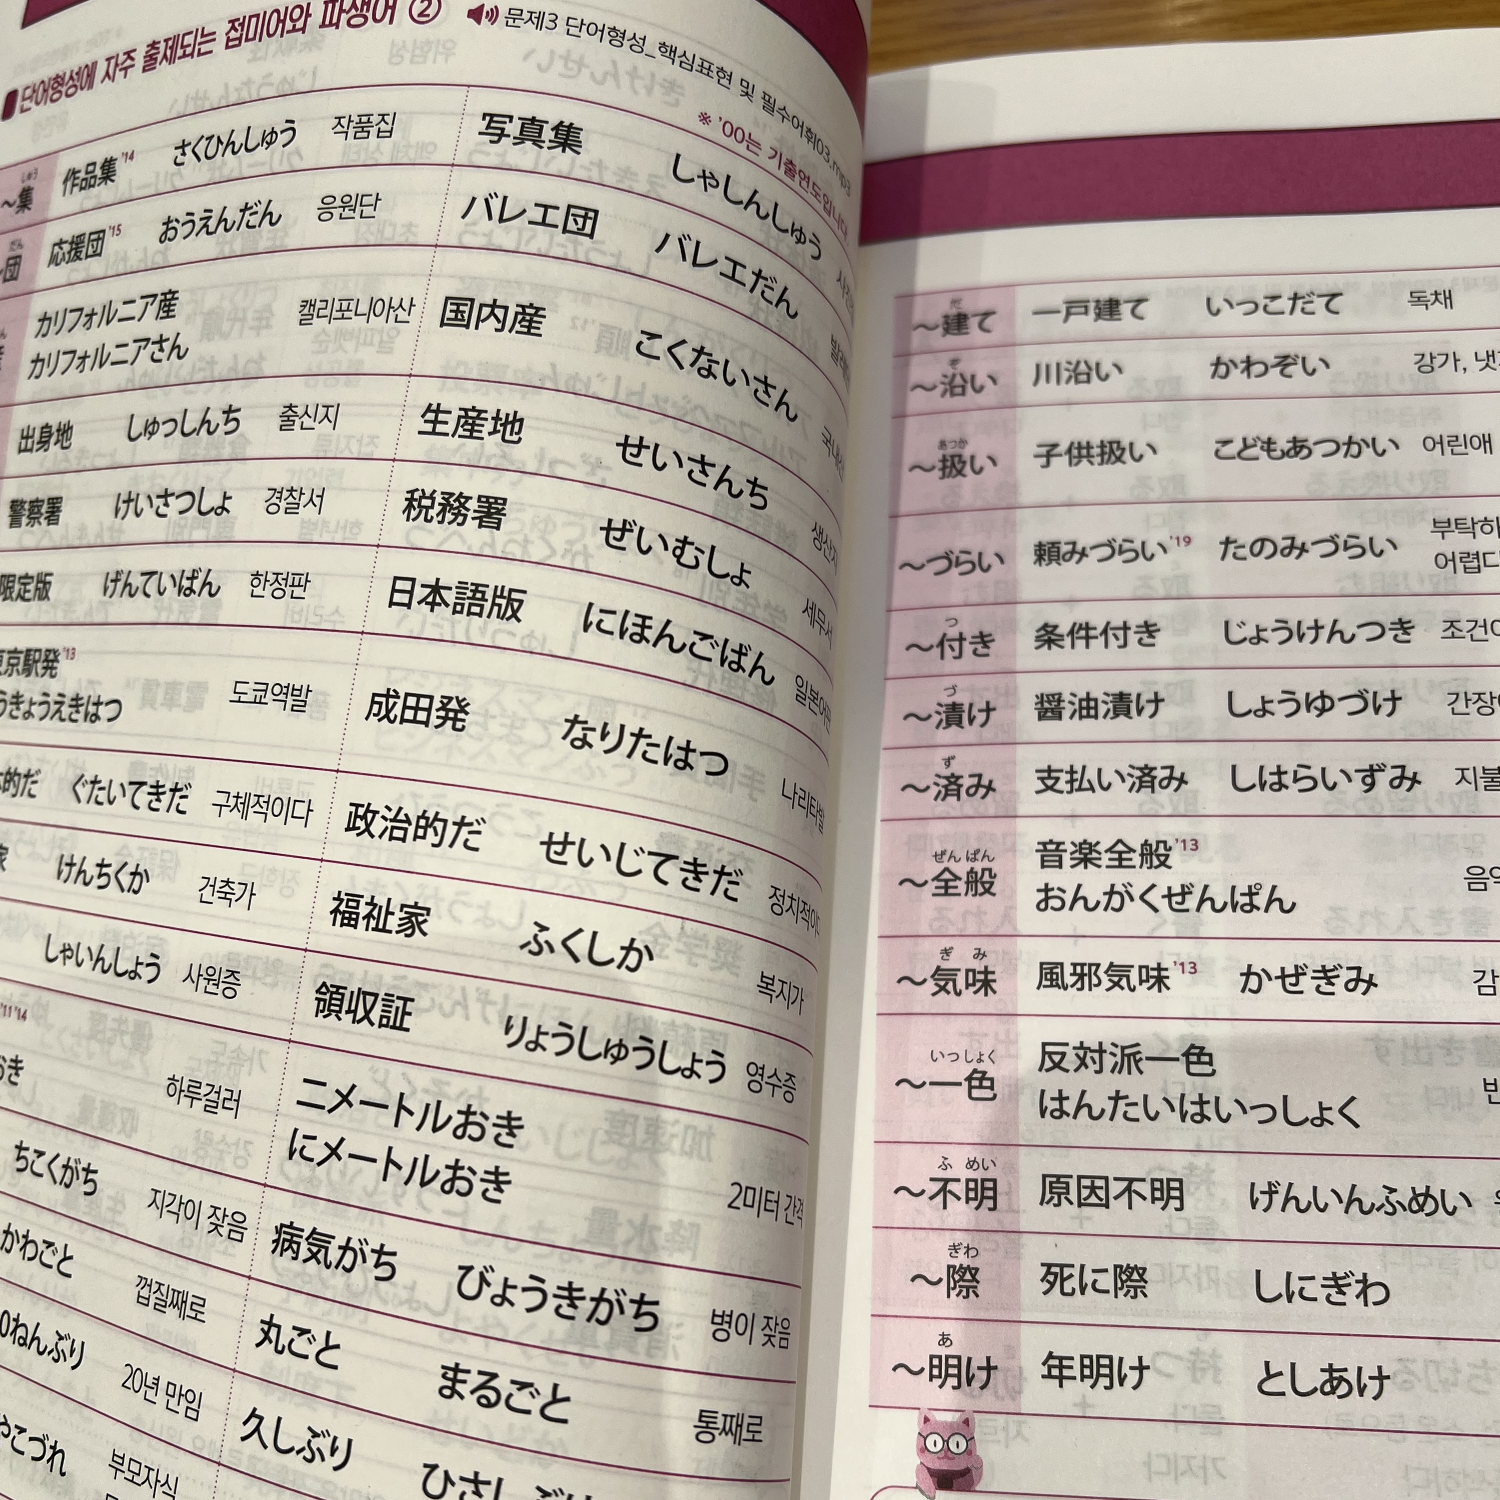 ■단어형성에 자주 출제되는 접미어와 파생어 ②
문제3 단어형성_핵심표현 및 필수어휘03.mp3
※ '00는 기출연도입니다.
～集 しゅう 作品集'14 さくひんしゅう 작품집 写真集 しゃしんしゅう
団 だん 応援団'15 おうえんだん 응원단 バレエ団 バレエだん
カリフォルニア産 캘리포니아산 国内産 こくないさん 국내산
カリフォルニアさん
出身地 しゅっしんち 출신지 生産地 せいさんち 생산지
警察署 けいさつしょ 경찰서 税務署 ぜいむしょ 세무서
限定版 げんていばん 한정판 日本語版 にほんごばん 일본어판
京駅発'13 도쿄역발 成田発 なりたはつ 나리타발
うきょうえきはつ
的だ ぐたいてきだ 구체적이다 政治的だ せいじてきだ 정치적이
家 けんちくか 건축가 福祉家 ふくしか 복지가
しゃいんしょう 사원증 領収証 りょうしゅうしょう 영수증
'11'14
おき 하루걸러 二メートルおき 2미터 간격
にメートルおき
ちこくがち 지각이 잦음 病気がち びょうきがち 병이 잦음
かわごと 껍질째로 丸ごと まるごと 통째로
0ねんぶり 20년 만임 久しぶり ひさしぶり
やこづれ 부모자식
～建て だ 一戸建て いっこだて 독채
～沿い ぞ 川沿い かわぞい 강가, 냇
～扱い あつか 子供扱い こどもあつかい 어린애
～づらい 頼みづらい'19 たのみづらい 부탁하
어렵다
～付き つ 条件付き じょうけんつき 조건이
～漬け づ 醤油漬け しょうゆづけ 간장
～済み ず 支払い済み しはらいずみ 지불
～全般 ぜんぱん 音楽全般'13 음악
おんがくぜんぱん
～気味 ぎみ 風邪気味'13 かぜぎみ 감
～一色 いっしょく 反対派一色
はんたいはいっしょく
～不明 ふめい 原因不明 げんいんふめい
～際 ぎわ 死に際 しにぎわ
～明け あ 年明け としあけ